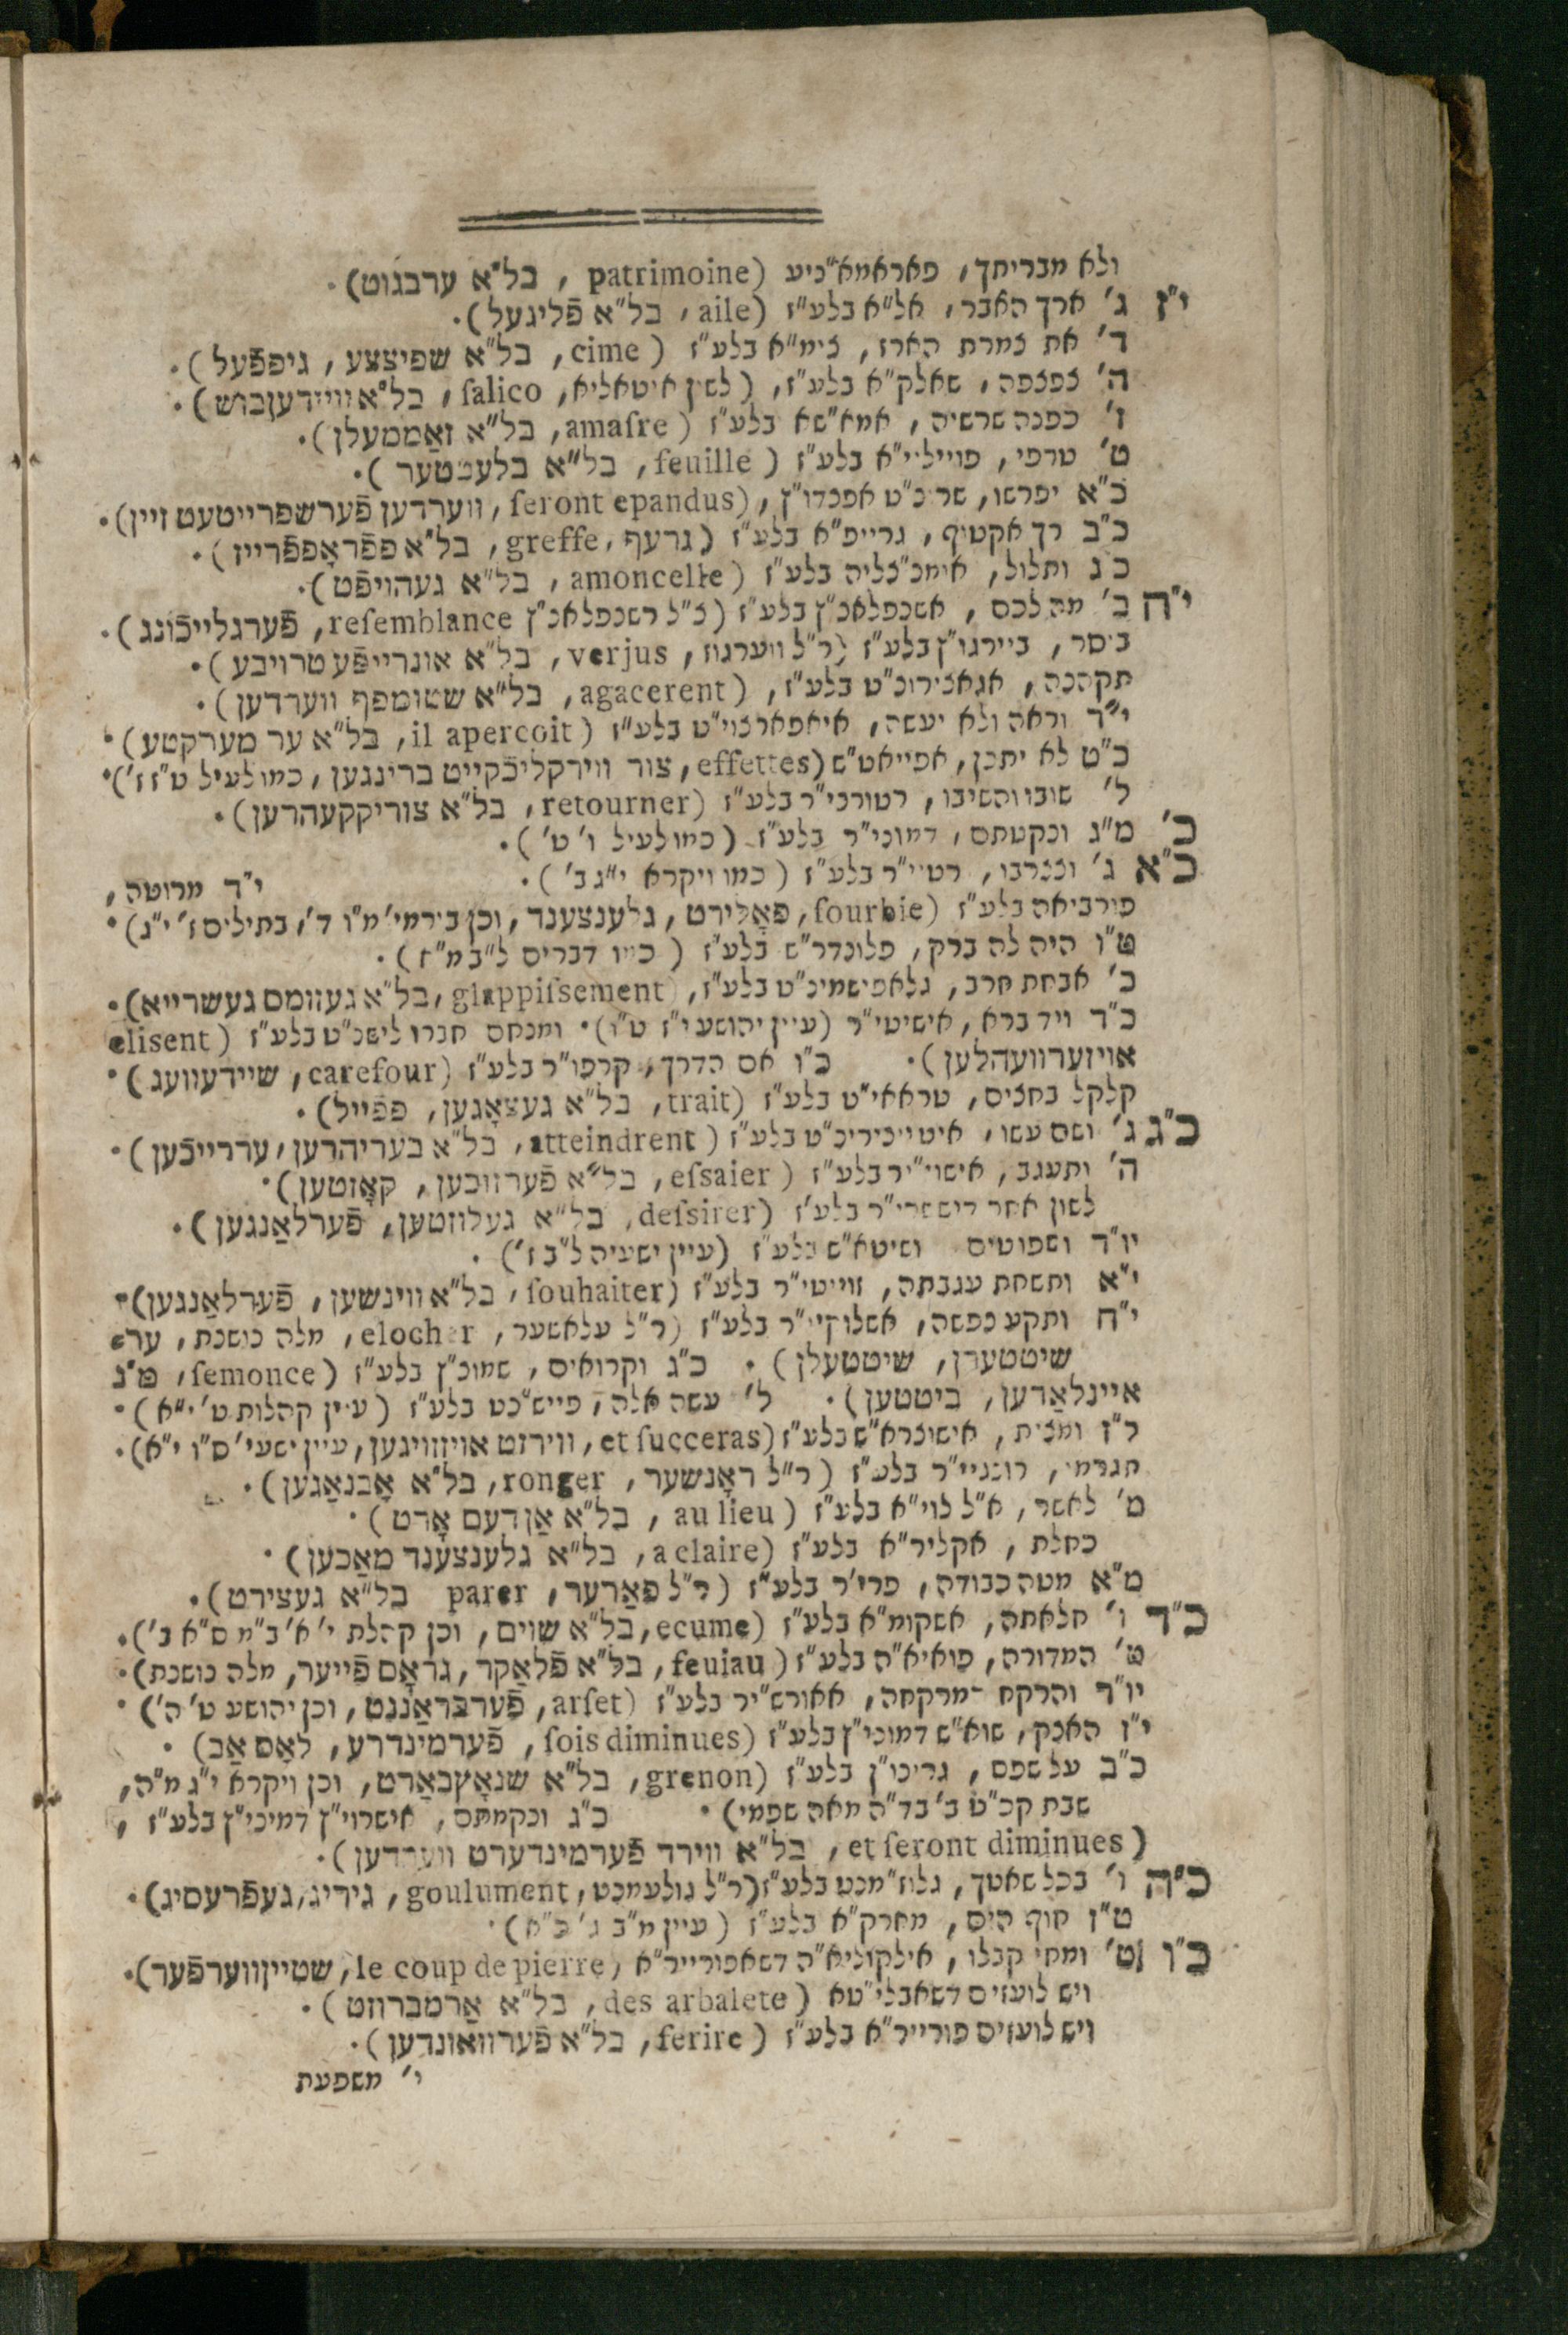 ולא מבריתך, פאראמא"ניע (patrimoine, בל"א ערבגוט).
י"ז ג' ארך האבר, אל"א בלע"ז (aile, בל"א פֿליגעל).
ד' את צמרת הארז, צימ"א בלע"ז (cime, בל"א שפיצצע, גיפפֿעל).
ה' צפצפה, שאלק"א בלע"ז, (לשון איטאליא, ſalico, בל"א וויידענבוש).
ז' כפנה שרשיה, אמא"שא בלע"ז (amaſre, בל"א זאַממעלן).
ט' טרפי, פויילי"א בלע"ז (feuille, בל"א בלעטטער).
כ"א יפרשו, שרונ"ט אפנדו"ן, (ſeront epandus, ווערדען פֿערשפרייטעט זיין).
כ"ב רך אקטוף, גרייפ"א בלע"ז (גרעף, greffe, בל"א פפֿראָפפֿרייז).
כ"ג ותלול, אימנ"צליה בלע"ז (amoncelle, בל"א געהויפֿט).
י"ח ב' מה לכם, אשנפלאנ"ץ בלע"ז (נ"ל רשנפלאנ"ץ reſemblance, פֿערגלייכֿונג).
בוסר, ביירגו"ץ בלע"ז (ר"ל ווערגוז, verjus, בל"א אונרייפֿע טרויבע).
תקהנה, אגאצירונ"ט בלע"ז, (agacerent, בל"א שטומפף ווערדען).
י"ד וראה ולא יעשה, איאפארצוי"ט בלע"ז (il apercoit, בל"א ער מערקטע).
כ"ט לא יתכן, אפייאט"ש (effettes, צור ווירקליכֿקייט ברינגען, כמו לעיל ט"ז ז').
ל' שובו והשיבו, רטורני"ר בלע"ז (retourner, בל"א צוריקקעהרען).
כ' מ"ג ונקטתם, דמוני"ר בלע"ז (כמו לעיל ו' ט').
כ"א ג' ונצרבו, רטיי"ר בלע"ז (כמו ויקרא י"ג ב'). י"ד מרוטה,
פורביאה בלע"ז (fourbie, פאָלירט, גלענצענד, וכן בירמי' מ"ו ד', בתילים ז' י"ג).
ט"ו היה לה ברק, פלונדר"ש בלע"ז (כמו דברים ל"ב מ"ז).
כ' אבחת חרב, גלאפישמינ"ט בלע"ז, (glappiſsement, בל"א געזומס געשרייא).
כ"ד ויד ברא, אישיטי"ר (עיין יהושע י"ז ט"ו). ומנחם חברו לישנ"ט בלע"ז (elisent
אויזערוועהלען). כ"ו אם הדרך, קרפו"ר בלע"ז (carefour, שיידעוועג).
קלקל בחצים, טראאי"ט בלע"ז (trait, בל"א געצאָגען, פפֿייל).
כ"ג ג' ושם עשו, איטיינירינ"ט בלע"ז (atteindrent, בל"א בעריהרען, עררייכֿען).
ה' ותעגב, אישוי"יר בלע"ז (eſsaier, בל"א פֿערזוכען, קאָזטען).
לשון אחר דישטרי"ר בלע"ז (deſsirer, בל"א געלוזטען, פֿערלאַנגען).
יו"ד ושפוטים ושיטא"ש בלע"ז (עיין ישעיה ל"ב ז').
י"א ותשחת עגבתה, זווייטי"ר בלע"ז (ſouhaiter, בל"א ווינשען, פֿערלאַנגען).
י"ח ותקע נפשה, אשלוקיי"ר בלע"ז (ר"ל עלאשער, elocher, מלה נושנת, ער=
שיטטערן, שיטטעלן). כ"ג וקרואים, שמונ"ץ בלע"ז (ſemonce, מ"נ
איינלאַדען, ביטטען). ל' עשה אלה, פייש"נט בלע"ז (עיין קהלות ט' י"א).
ל"ז ומצית, אישוצרא"ש בלע"ז (et ſucceras, ווירזט אויזזויגען, עיין ישעי' ס"ו י"א).
תגרמי, רונגיי"ר בלע"ז (ר"ל ראָנשער, ronger, בל"א אָבנאַגען).
מ' לאשר, א"ל לוי"א בלע"ז (au lieu, בל"א אַן דעם אָרט).
כחלת, אקליר"א בלע"ז (a claire, בל"א גלענצענד מאַכען).
מ"א מטה כבודה, פרי"ר בלע"ז (ר"ל פאַרער, parer בל"א געצירט).
כ"ד ו' חלאתה, אשקומ"א בלע"ז (ecume, בל"א שוים, וכן קהלת י' א' ב"מ ס"א ב').
ט' המדורה, פואיא"ה בלע"ז (feuiau, בל"א פֿלאַקר, גראָס פֿייער, מלה נושנת).
יו"ד והרקח המרקחה, אאורש"יר בלע"ז (arſet, פֿערבראַננט, וכן יהושע ט' ה').
י"ז האנק, שוא"ש דמוני"ץ בלע"ז (ſois diminues, פֿערמינדרע, לאָס אַב).
כ"ב על שפם, גרינו"ן בלע"ז (grenon, בל"א שנאָצבאַרט, וכן ויקרא י"ג מ"ה,
שבת קכ"ט ב' בד"ה מאה שפמי). כ"ג ונקמתם, אישרוי"ץ דמיני"ץ בלע"ז,
(et ſeront diminues, בל"א ווירד פֿערמינדערט ווערדען).
כ"ה ו' בכל שאטך, גלוז"מנט בלע"ז (ר"ל גולעמנט, goulument, גיריג, געפֿרעסיג).
ט"ז חוף הים, מארק"א בלע"ז (עיין מ"ב ג' כ"א).
כ"ו ט' ומחי קבלו, אילקוליא"ה דשאפוריייר"א (le coup de pierre, שטיינווערפֿער).
ויש לועזים דשאבלי"טא (des arbalete, בל"א אַרמברוזט).
ויש לועזים פוריייר"א בלע"ז (ferire, בל"א פֿערוואונדען).
י' משפעת